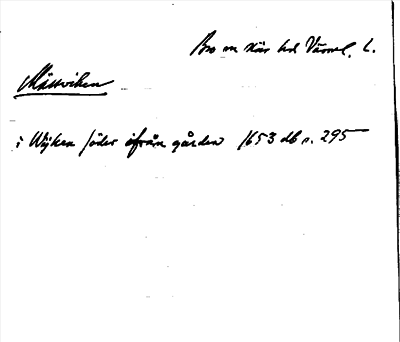 Bro o När hd Värml. L.
Mässviken
i Wijken söder ifrån gården 1653 db s. 295